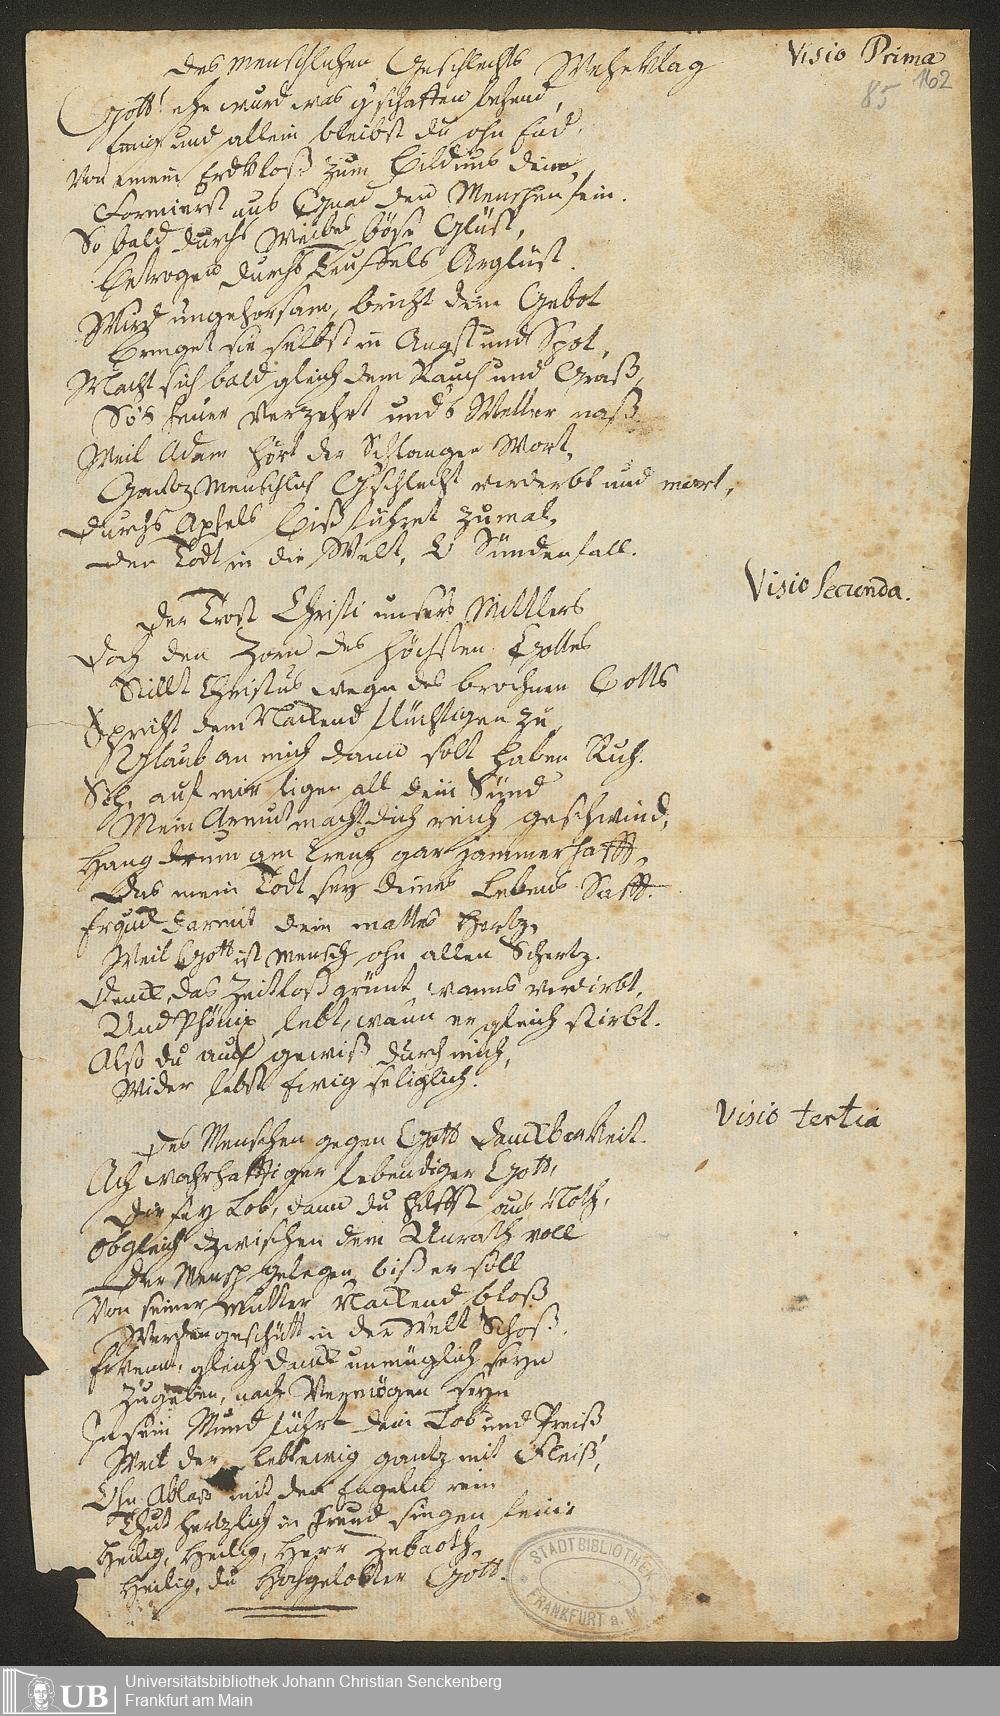 Visio Prima
162
85
Des Menschlichen Geschlechts Weheklag
Gott! ehe wurd was gschaffen behend,
Ewig und allein bleibst du ohn End.
Von einem Erdkloß zum Bildnus dein,
Formierst aus Gnad den Menschen fein.
So bald durchs Weibes böse Glüst,
Betrogen durchs Teuffels Arglüst.
Wird ungehorsam, bricht dein Gebot
Bringet sie selbst in Angst und Spot,
Macht sich bald gleich dem Rauch und Graß,
So's Feuer verzehrt unds Wetter naß
Weil Adam hört der Schlangen Wort,
Gantz Menschlich Gschlecht verderbt und mort,
Durchs Apfels Biß führet zumal,
Der Todt in die Welt, O Sündenfall.
Visio Secunda.
Der Trost Christi unsers Mittlers
Doch den Zorn des höchsten Gottes
Stillt Christus wegn des brochnen Botts
Spricht dem Nackend flüchtigen zu
Glaub an mich dann solt haben Ruh.
Sih, auf mir ligen all dein Sünd
Mein Armut macht dich reich geschwind,
Hang drum am Creutz gar jammerhafft,
Das mein Todt sey deines Lebens Safft.
Erquick darmit dein mattes Hertz,
Weil Gott ist Mensch ohn allen Schertz.
Denck, das Zeitloß grünt wanns verdirbt,
Und Phönix lebt, wann er gleich stirbt.
Also du auch gewiß durch mich,
Wider lebst Ewig seliglich.
Visio tertia
Des Menschen gegen Gott Danckbarkeit.
Ach wahrhafftiger lebendiger Gott,
Dir sey Lob, dann du hilffst aus Noth,
Obgleich zwischen dem Unrath voll
Der Mensch gelegen biß er soll
Von seiner Mutter Nackend bloß
Werden geschütt in der Welt Schoß.
Erkennt, gleich Danck unmüglich seyn
Zugeben, nach Vermögen seyn
In sein Mund führt dein Lob und Preiß,
Weil der lebt ewig gantz mit Fleiß,
Ohn Ablaß mit den Engeln rein
Thut hertzlich in Freud singen fein:
Heilig, Heilig, Herr Zebaoth,
Heilig, du Hochgelobter Gott.
STADTBIBLIOTHEK
FRANKFURT a. M.
UB
Universitätsbibliothek Johann Christian Senckenberg
Frankfurt am Main